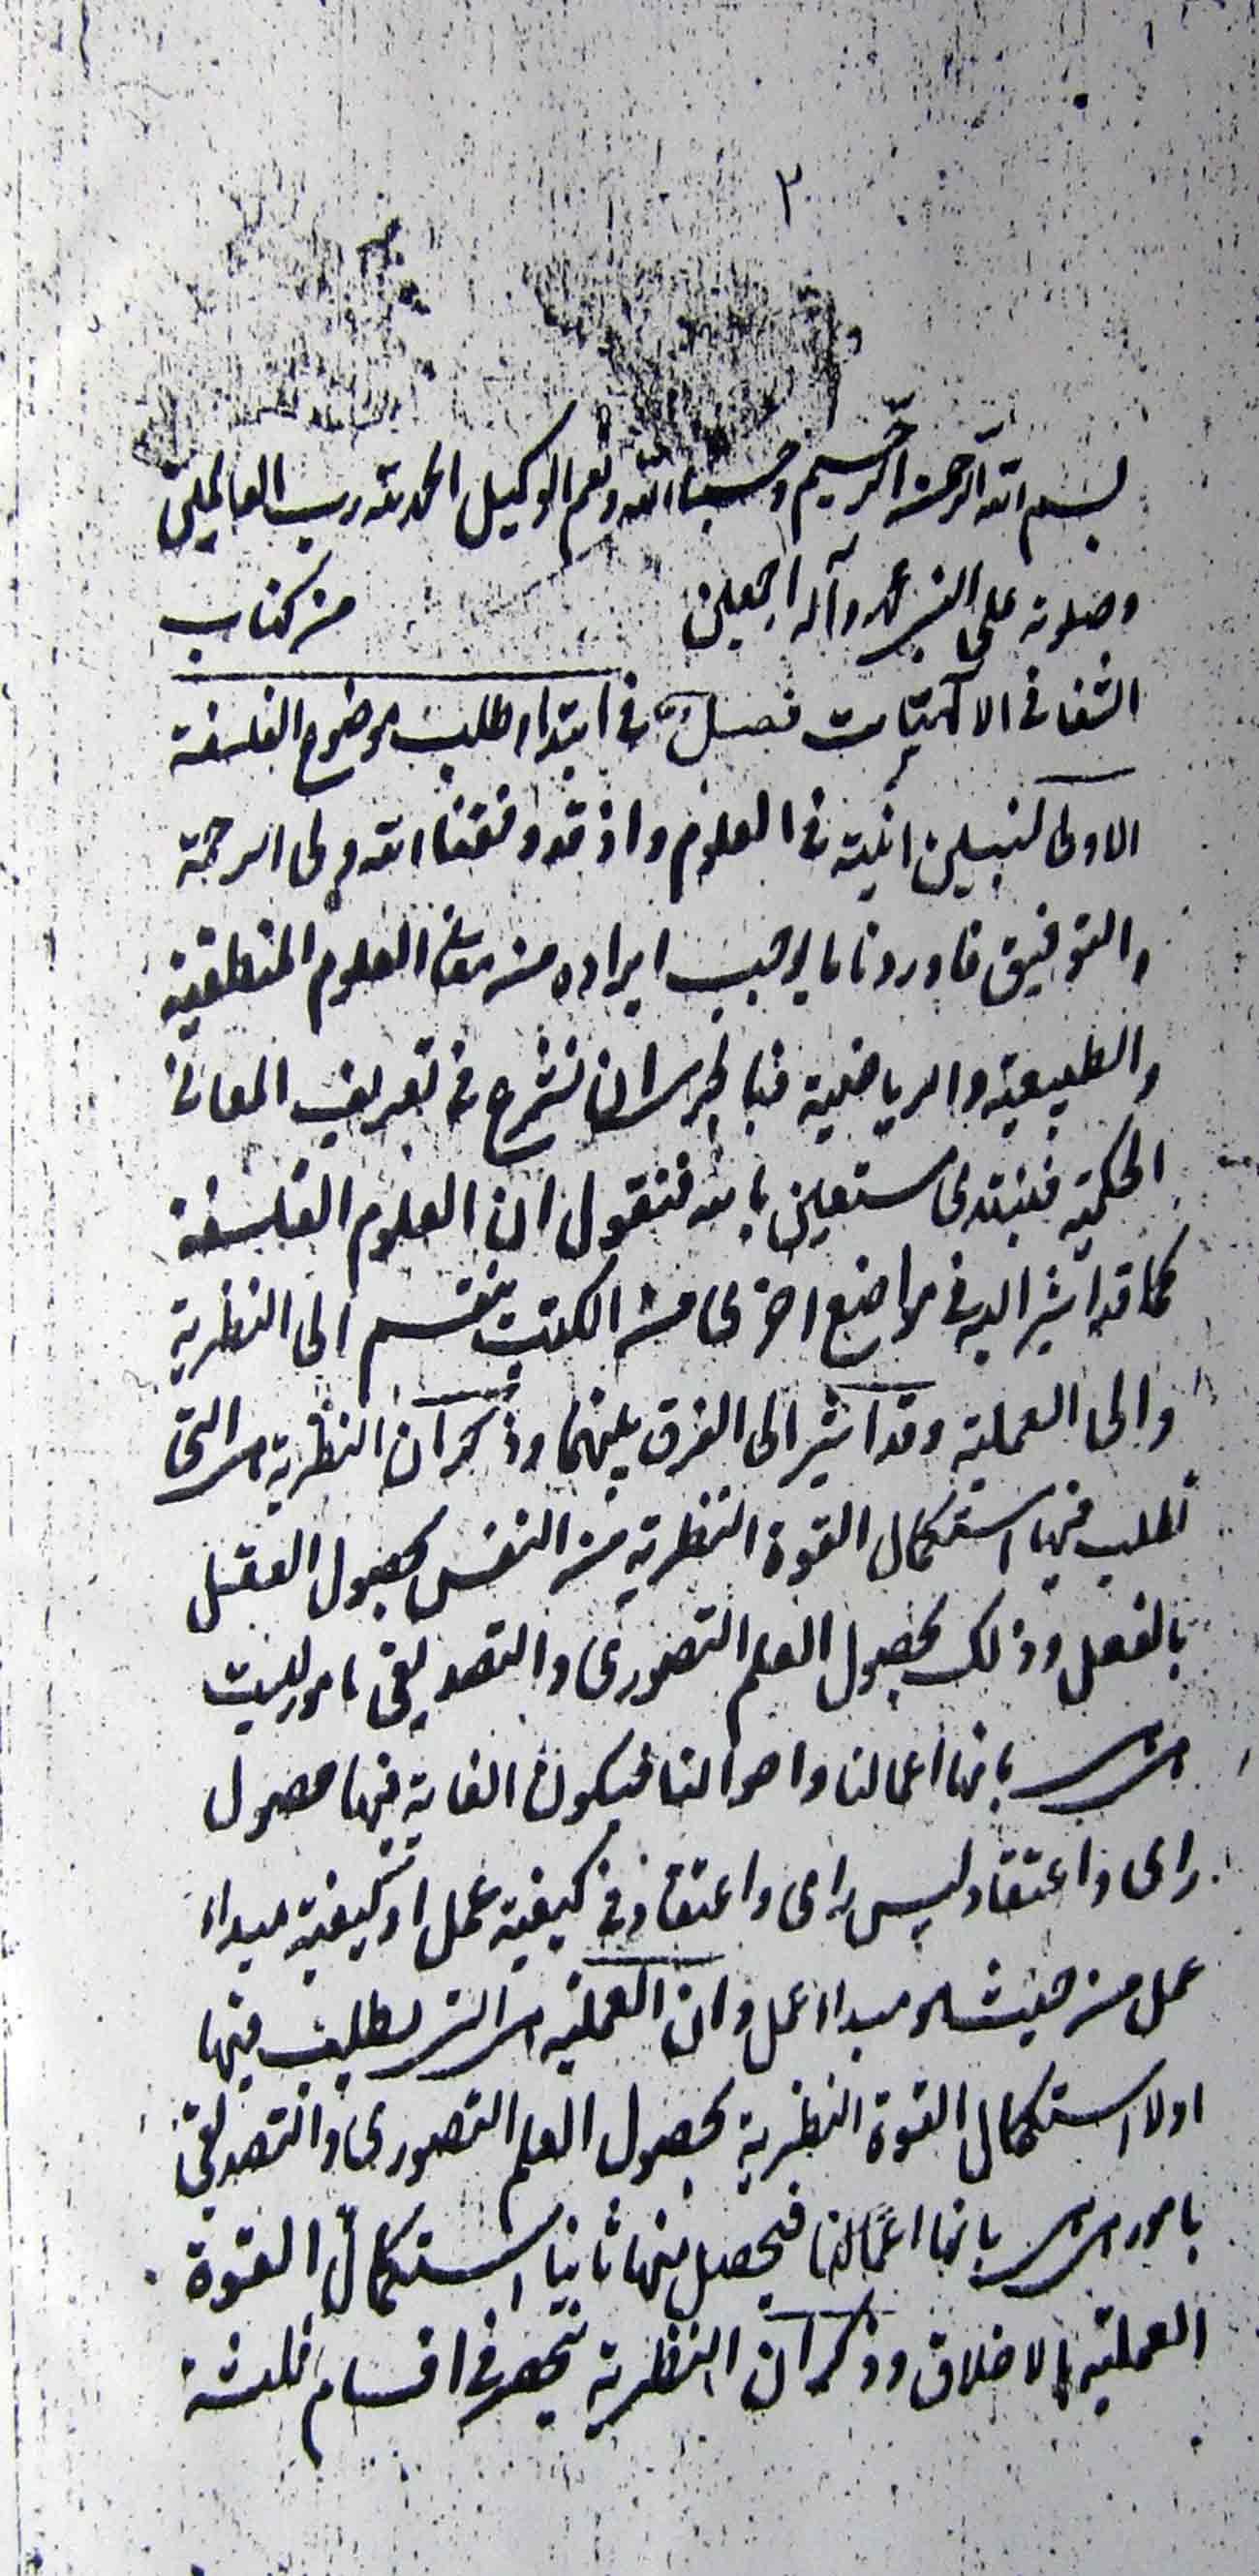 ٣
بسم الله الرحمن الرحيم وحسبنا الله ونعم الوكيل الحمد لله رب العالمين
وصلوته على النبي محمد وآله اجمعين من كتاب
الشفا في الالهيّات فصل في ابتداء طلب موضوع الفلسفة
الاولى لتبيين انيته في العلوم واذ قد وفقنا الله ولى الرحمة
والتوفيق فاوردنا ما يوجب ايراده من معانى العلوم المنطقية
والطبيعية والرياضية فبالحرى ان نشرع في تعريف المعانى
الحكمية فنبتدى مستعين بالله فنقول ان العلوم الفلسفة
كما قد اشير اليه في مواضع اخرى من الكتب تنقسم الى النظرية
والى العملية وقد اشير الى الفرق بينهما وذكر ان النظرية هى التى
نطلب فيها استكمال القوة النظرية من النفس لحصول العقل
بالفعل وذلك بحصول العلم التصورى والتصديقى بامور ليست
هى هى بانها اعمالنا واحوالنا فيكون الغاية فيها حصول
راى واعتقاد ليس راى واعتقاد في كيفية عمل او كيفية مبداء
عمل من حيث هو مبداء عمل وان العملية هى التى يطلب فيها
اولا استكمال القوة النظرية بحصول العلم التصورى والتصديقى
بامور هى هى بانها اعمالنا فيحصل منها ثانيا استكمال القوة
العملية بالاخلاق وذكر ان النظرية تنحصر في اقسام ثلثة